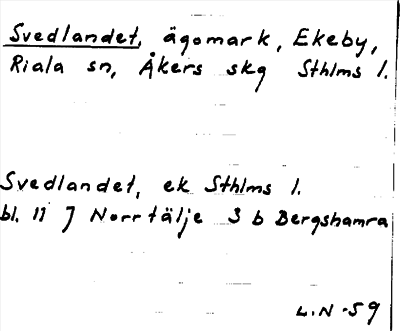 Svedlandet, ägomark, Ekeby,
Riala sn, Åkers skg Sthlms l.
Svedlandet, ek Sthlms l.
bl. 11 J Norrtälje S b Bergshamra
L.N -59